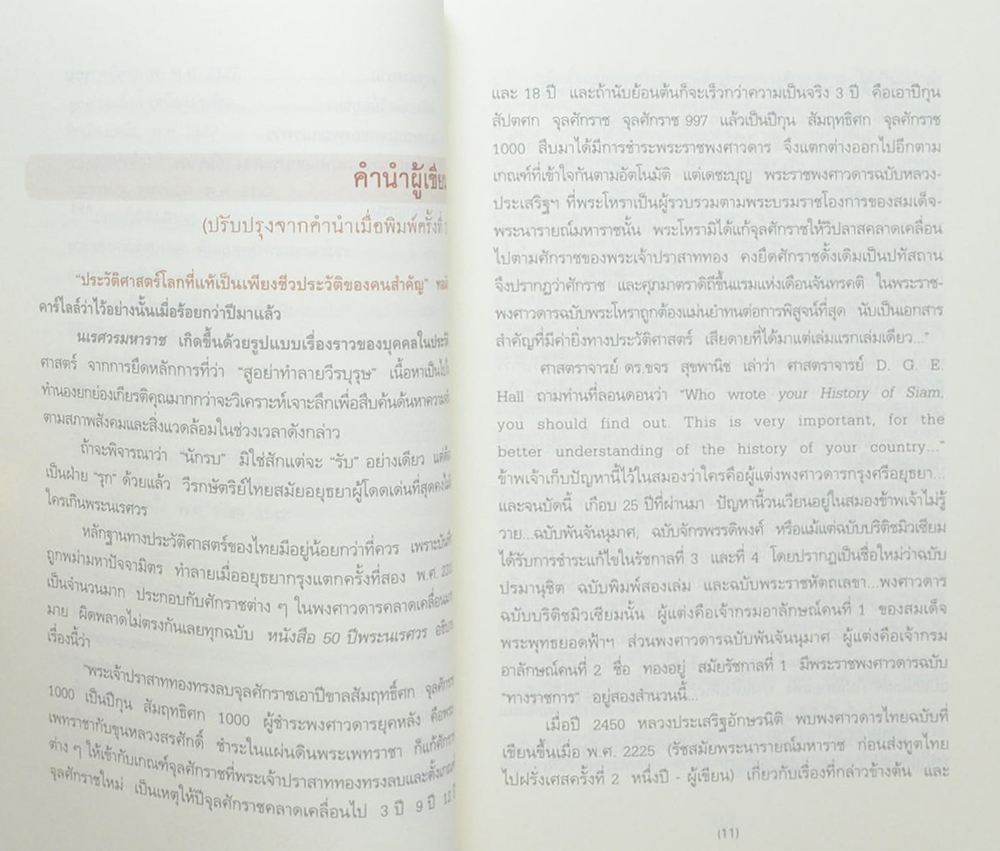 คำนำผู้เขียน
(ปรับปรุงจากคำนำเมื่อพิมพ์ครั้งที่
"ประวัติศาสตร์โลกที่แท้เป็นเพียงชีวประวัติของคนสำคัญ"
คาร์ไลล์ว่าไว้อย่างนั้นเมื่อร้อยกว่าปีมาแล้ว
นเรศวรมหาราช เกิดขึ้นด้วยรูปแบบเรื่องราวของบุคคลในประวัติ
ศาสตร์ จากการยึดหลักการที่ว่า "สูอย่าทำลายวีรบุรุษ" เนื้อหาเป็นไป
ทำนองยกย่องเกียรติคุณมากกว่าจะวิเคราะห์เจาะลึกเพื่อสืบค้นต้นหาความ
ตามสภาพสังคมและสิ่งแวดล้อมในช่วงเวลาดังกล่าว
ถ้าจะพิจารณาว่า "นักรบ" มิใช่สักแต่จะ "รับ" อย่างเดียว แต่ต้อง
เป็นฝ่าย "รุก" ด้วยแล้ว วีรกษัตริย์ไทยสมัยอยุธยาผู้โดดเด่นที่สุดคงไม่มี
ใครเกินพระนเรศวร
หลักฐานทางประวัติศาสตร์ของไทยมีอยู่น้อยกว่าที่ควร เพราะบันทึก
ถูกพม่ามหาปัจจามิตร ทำลายเมื่ออยุธยากรุงแตกครั้งที่สอง พ.ศ.
เป็นจำนวนมาก ประกอบกับศักราชต่าง ๆ ในพงศาวดารคลาดเคลื่อน
มาย ผิดพลาดไม่ตรงกันเลยทุกฉบับ หนังสือ 50 ปีพระนเรศวร อธิบาย
เรื่องนี้ว่า
"พระเจ้าปราสาททองทรงลบจุลศักราชเอาปีขาลสัมฤทธิ์ศก จุลศักราช
1000 เป็นปีกุน สัมฤทธิศก 1000 ผู้ชำระพงศาวดารยุคหลัง คือพระ
เพทราชากับขุนหลวงสรศักดิ์ ชำระในแผ่นดินพระเพทราชา ก็แก้ศักราช
ต่าง ๆ ให้เข้ากับเกณฑ์จุลศักราชที่พระเจ้าปราสาททองทรงลบและตั้งเกณฑ์
จุลศักราชใหม่ เป็นเหตุให้ปีจุลศักราชคลาดเคลื่อนไป 3 ปี 9 ปี 12 ปี
และ 18 ปี และถ้านับย้อนต้นก็จะเร็วกว่าความเป็นจริง 3 ปี คือเอาปีกุน
สัปตศก จุลศักราช จุลศักราช 997 แล้วเป็นปีกุน สัมฤทธิศก จุลศักราช
1000 สืบมาได้มีการชำระพระราชพงศาวดาร จึงแตกต่างออกไปอีกตาม
เกณฑ์ที่เข้าใจกันตามอัตโนมัติ แต่เดชะบุญ พระราชพงศาวดารฉบับหลวง-
ประเสริฐฯ ที่พระโหราเป็นผู้รวบรวมตามพระบรมราชโองการของสมเด็จ-
พระนารายณ์มหาราชนั้น พระโหรามิได้แก้จุลศักราชให้วิปลาสคลาดเคลื่อน
ไปตามศักราชของพระเจ้าปราสาททอง คงยึดศักราชดั้งเดิมเป็นปทัสถาน
จึงปรากฏว่าศักราช และศุภมาตราดิถีขึ้นแรมแห่งเดือนจันทรคติ ในพระราช-
พงศาวดารฉบับพระโหราถูกต้องแม่นยำทนต่อการพิสูจน์ที่สุด นับเป็นเอกสาร
สำคัญที่มีค่ายิ่งทางประวัติศาสตร์ เสียดายที่ได้มาแต่เล่มแรกเล่มเดียว..."
ศาสตราจารย์ ดร.ขจร สุขพานิช เล่าว่า ศาสตราจารย์ D. G. E.
Hall ถามท่านที่ลอนดอนว่า "Who wrote your History of Siam,
you should find out. This is very important, for the
better understanding of the history of your country..."
ข้าพเจ้าเก็บปัญหานี้ไว้ในสมองว่าใครคือผู้แต่งพงศาวดารกรุงศรีอยุธยา...
และจนบัดนี้ เกือบ 25 ปีที่ผ่านมา ปัญหานี้วนเวียนอยู่ในสมองข้าพเจ้าไม่รู้
วาย...ฉบับพันจันนุมาศ, ฉบับจักรพรรดิพงศ์ หรือแม้แต่ฉบับบริติชมิวเซียม
ได้รับการชำระแก้ไขในรัชกาลที่ 3 และที่ 4 โดยปรากฏเป็นชื่อใหม่ว่าฉบับ
ปรมานุชิต ฉบับพิมพ์สองเล่ม และฉบับพระราชหัตถเลขา...พงศาวดาร
ฉบับบริติชมิวเซียมนั้น ผู้แต่งคือเจ้ากรมอาลักษณ์คนที่ 1 ของสมเด็จ
พระพุทธยอดฟ้าฯ ส่วนพงศาวดารฉบับพันจันนุมาศ ผู้แต่งคือเจ้ากรม
อาลักษณ์คนที่ 2 ชื่อ ทองอยู่ สมัยรัชกาลที่ 1 มีพระราชพงศาวดารฉบับ
"ทางราชการ" อยู่สองสำนวนนี้...
เมื่อปี 2450 หลวงประเสริฐอักษรนิติ พบพงศาวดารไทยฉบับที่
เขียนขึ้นเมื่อ พ.ศ. 2225 (รัชสมัยพระนารายณ์มหาราช ก่อนส่งทูตไทย
ไปฝรั่งเศสครั้งที่ 2 หนึ่งปี - ผู้เขียน) เกี่ยวกับเรื่องที่กล่าวข้างต้น และ
(11)